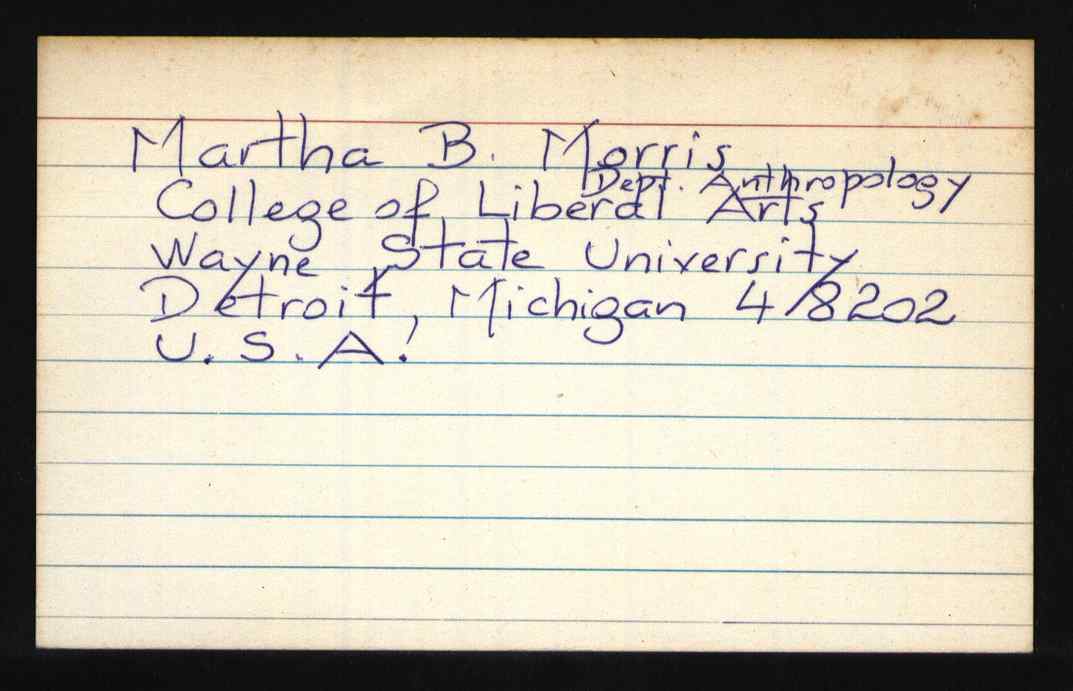 Martha B. Morris
Dept. Anthropology
College of Liberal Arts
Wayne State University
Detroit, Michigan 48202
U.S.A.